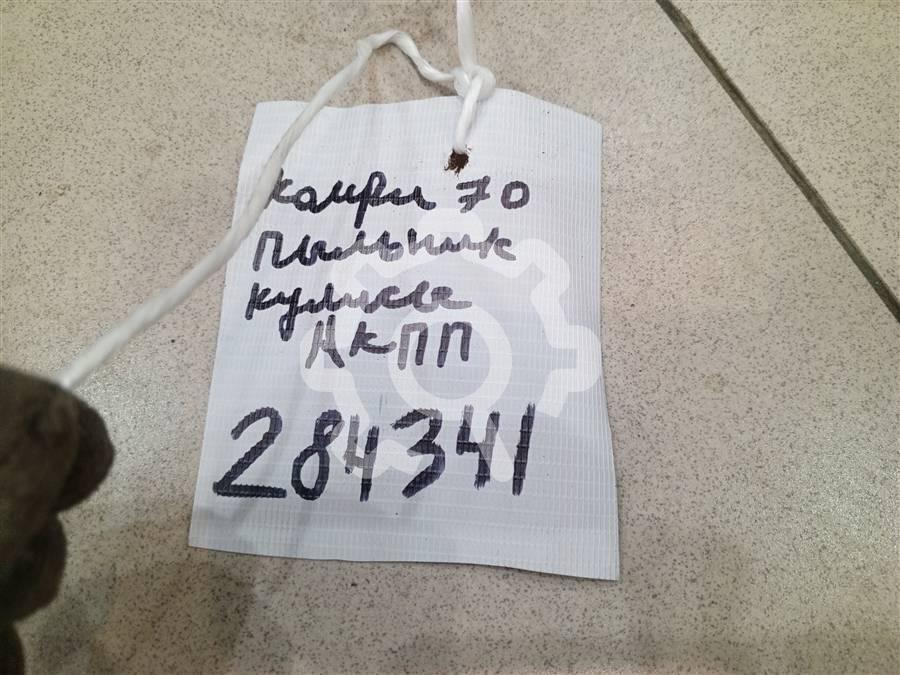 камри 70
пыльник
кулисы
АКПП
284341